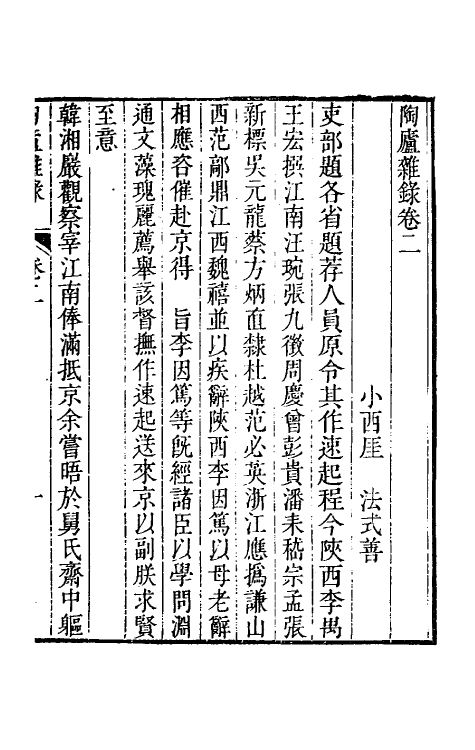 陶廬雜錄卷二
小西厓　法式善
吏部題各省題荐人員原令其作速起程今陝西李禺
王宏撰江南汪琬張九徵周慶曾彭貴潘耒嵇宗孟張
新標吳元龍蔡方炳直隸杜越范必英浙江應撝謙山
西范鄗鼎江西魏禧並以疾辭陝西李因篤以母老辭
相應咨催赴京得　旨李因篤等旣經諸臣以學問淵
通文藻瑰麗薦舉該督撫作速起送來京以副朕求賢
至意
韓湘巖觀察宰江南俸滿抵京余嘗晤於舅氏齋中軀
卷二
一